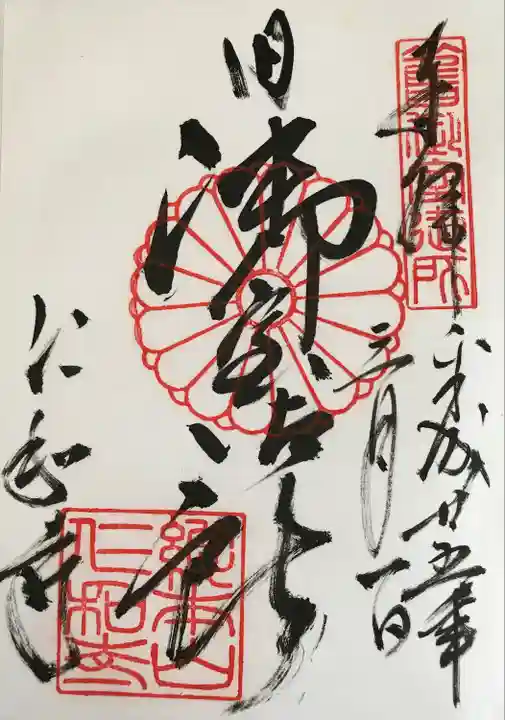 舊御室御所
奉拝 平成廿五年
三月一日
旧御室御所
仁和寺
總本山
仁和寺